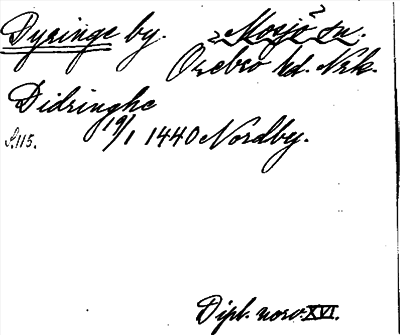 Dyringe by. ? Mosjö sn. ?
Örebro hd. Nrk.
Didringhe
S. 115. 19/1 1440 Nordby.
Dipl. norv. XVI.